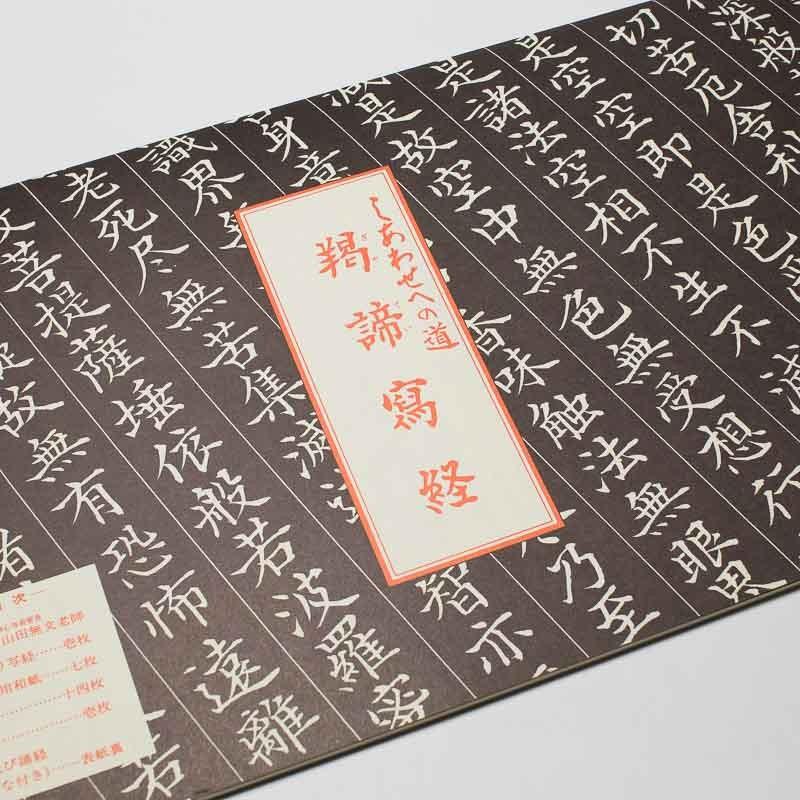 深般
切苦厄舍利
是空空即是色受
是諸法空相不生不減
減是故空中無色無受想行
身意
香味触法無眼界
識界
乃至
老死尽無苦集滅
智亦
菩提薩埵依般若波羅蜜
故無有恐怖遠離
若
しあわせへの道
羯諦寫経
ぎゃ
てい
目次
山田無文老師
写経……壱枚
用和紙……七枚
……十四枚
……壱枚
び誦経
な付き)……表紙裏